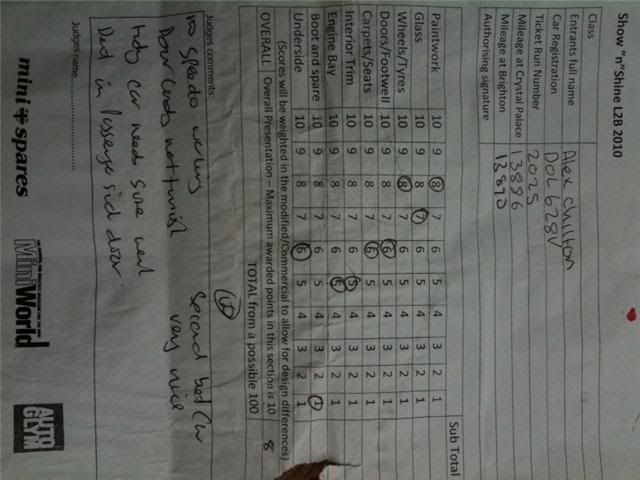 Show "n"Shine L2B 2010
Class
Entrants full name Alex Chilton
Car Registration DOL 628V
Ticket Run Number 2025
Mileage at Crystal Palace 13896
Mileage at Brighton
Authorising signature
Sub Total
Paintwork 10 9 8 7 6 5 4 3 2 1
Glass 10 9 8 7 6 5 4 3 2 1
Wheels/Tyres 10 9 8 7 6 5 4 3 2 1
Doors/Footwell 10 9 8 7 6 5 4 3 2 1
Carpets/Seats 10 9 8 7 6 5 4 3 2 1
Interior Trim 10 9 8 7 6 5 4 3 2 1
Engine Bay 10 9 8 7 6 5 4 3 2 1
Boot and spare 10 9 8 7 6 5 4 3 2 1
Underside 10 9 8 7 6 5 4 3 2 1
(Scores will be weighted in the modified/Commercial to allow for design differences)
OVERALL Overall Presentation – Maximum awarded points in this section is 10 8
TOTAL from a possible 100
Judges comments:
no speedo working Second best Car
Door cards not very nice
car need some
Dent in Passenge side door.
Judges name
mini spares
MiniWorld
AUTO GLYM